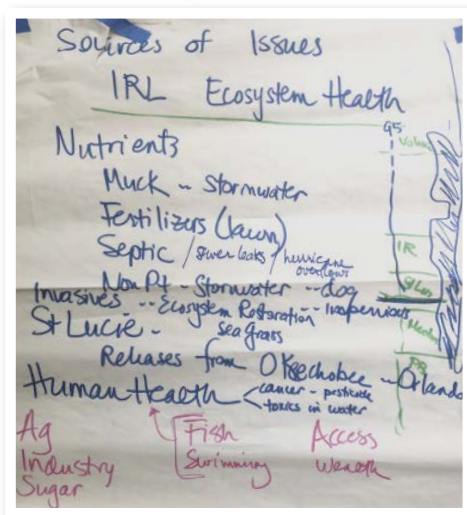 Sources of Issues
IRL Ecosystem Health
Nutrients
Muck - Stormwater
Fertilizers (lawn)
Septic / sewer leaks / hurricane overflows
Non Pt - Stormwater - dog
Invasives -- Ecosystem Restoration - impervious
St Lucie - sea grass
Releases from Okeechobee - Orlando
Human Health < cancer - pesticide
toxics in water
Ag
Industry
Sugar
Fish
Swimming
Access
Wealth
95
Volusia
IR
St Luc
PB